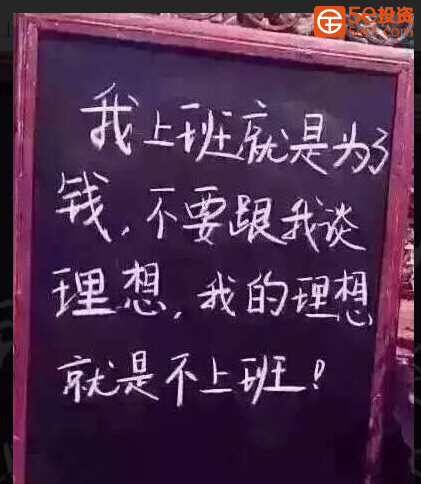 5e投资
我上班就是为了
钱，不要跟我谈
理想，我的理想
就是不上班！